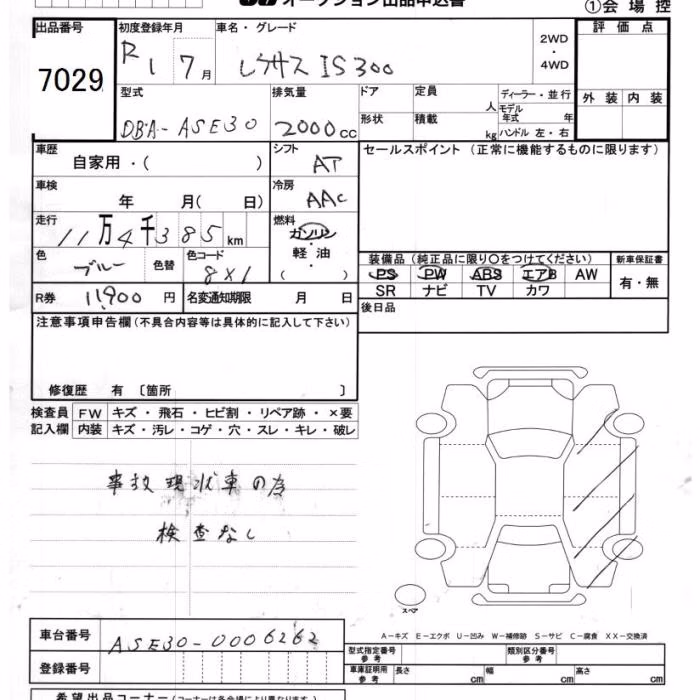 オークション出品申込書
①会場控
出品番号
7029
初度登録年月
R1 7月
車名・グレード
レクサス IS300
2WD
・
4WD
評価点
外装 内装
型式
DBA-ASE30
排気量
2000cc
ドア
形状
定員 人
積載 kg
ディーラー・並行
モデル年式 年
ハンドル 左・右
車歴
自家用・( )
シフト
AT
セールスポイント (正常に機能するものに限ります)
車検
年 月( 日)
冷房
AAC
走行
11万4千385km
燃料
ガソリン
軽油
( )
色
ブルー
色替
色コード
8X1
装備品 (純正品に限り○をつけてください)
PS PW ABS エアB AW
SR ナビ TV カワ
新車保証書
有・無
R券 11,900円
名変通知期限 月 日
後日品
注意事項申告欄(不具合内容等は具体的に記入して下さい)
修復歴 有 〔箇所 〕
検査員記入欄
FW キズ・飛石・ヒビ割・リペア跡・×要
内装 キズ・汚レ・コゲ・穴・スレ・キレ・破レ
事故現状車の為
検査なし
スペア
A-キズ E-エクボ U-凹み W-補修跡 S-サビ C-腐食 XX-交換済
車台番号 ASE30-0006262
登録番号
型式指定番号 参考
類別区分番号 参考
車庫証明用 参考 長さ cm 幅 cm 高さ cm
希望出品コーナー(コーナーは各会場により異なります。)